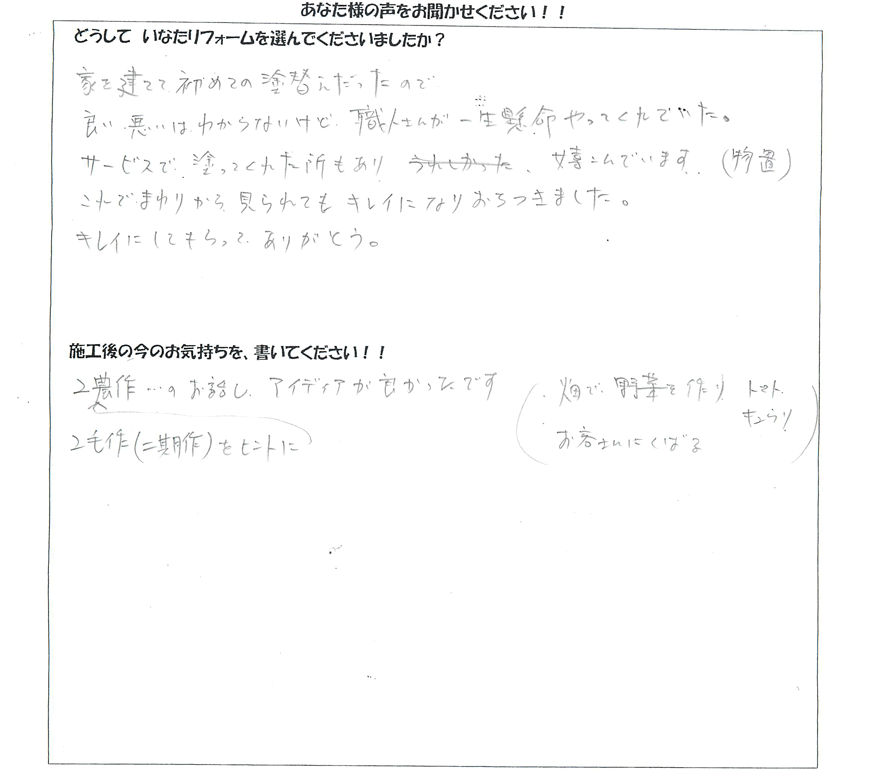 あなた様の声をお聞かせください！！
どうして いなたリフォームを選んでくださいましたか？
家を建てて 初めての塗替えだったので
良い 悪いは わからないけど 職人さんが 一生懸命 やってくれてやた。
サービスで 塗ってくれた所もあり うれしかった、喜こんでいます (物置)
これでまわりから 見られても キレイになり おちつきました。
キレイにしてもらって ありがとう。
施工後の今のお気持ちを、書いてください！！
2農作…のお話し アイディアが良かったです
2毛作(二期作)をヒントに
畑で 野菜を作り トマト
キュウリ
お客さんにくばる